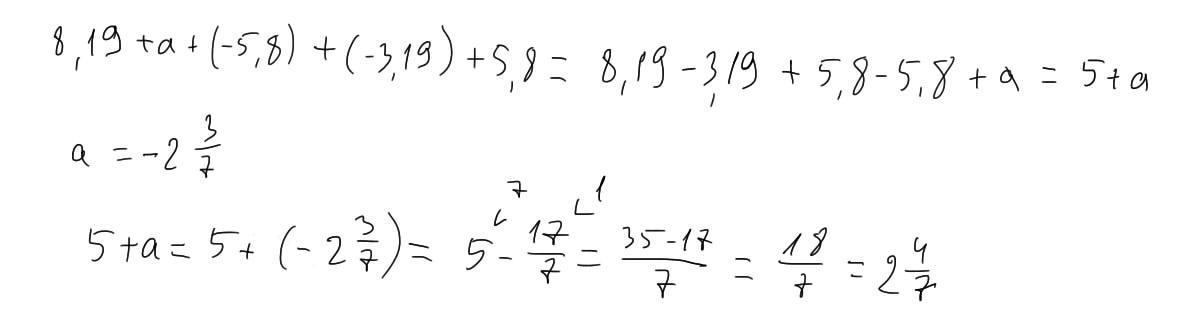 8,19 + a + (-5,8) + (-3,19) + 5,8 = 8,19 - 3,19 + 5,8 - 5,8 + a = 5 + a
a = -2 3/7
5 + a = 5 + (-2 3/7) = 5 7 - 17/7 1 = (35-17)/7 = 18/7 = 2 4/7